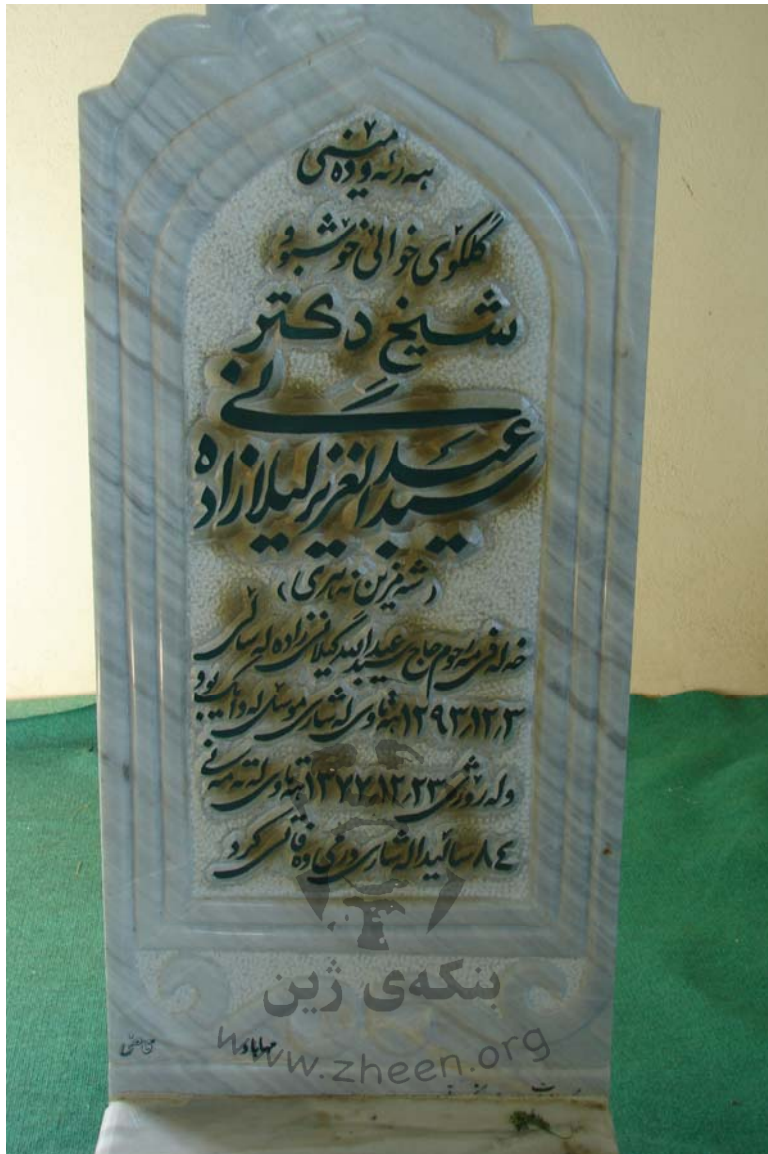 هەر ئەو دەمێنی
گڵکۆی خوالێ خۆشبوو
شیخ دکتر
سید عبدالعزیز گیلانی زاده
(شەمزین نەهری)
خەلەفی مەرحوم حاج سید عبدالله گیلانی زاده لە ساڵی
١٢٩٣/١٢/٣ هەتاوی لە شاری موسڵ لە دایک بوو
و لە رۆژی ١٣٧٧/١٢/٢٣ هەتاوی لە تەمەنی
٨٤ ساڵیدا لە شاری وەفاتی کرد
بنکەی ژین
www.zheen.org
مهاباد